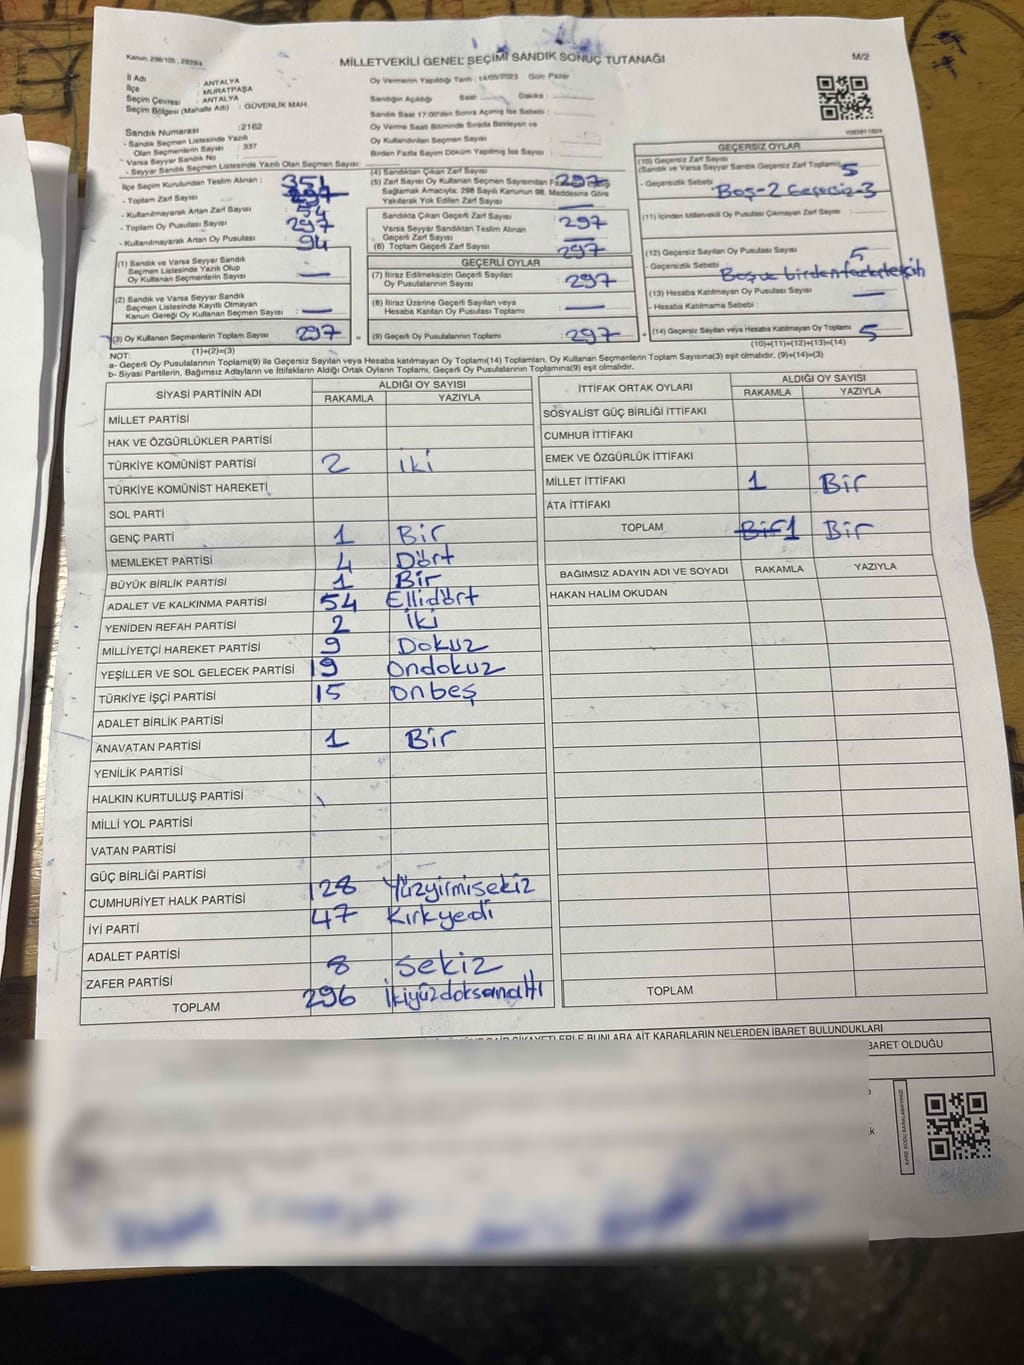 Kanun, 298/105, 2839/4
MİLLETVEKİLİ GENEL SEÇİMİ SANDIK SONUÇ TUTANAĞI
M/2
İl Adı : ANTALYA
İlçe : MURATPAŞA
Seçim Çevresi : ANTALYA
Seçim Bölgesi (Mahalle Adı) : GÜVENLİK MAH.
Sandık Numarası :2162
- Sandık Seçmen Listesinde Yazılı
Olan Seçmenlerin Sayısı : 337
- Varsa Seyyar Sandık No :
- Seyyar Sandık Seçmen Listesinde Yazılı Olan Seçmen Sayısı:
İlçe Seçim Kurulundan Teslim Alınan ;
- Toplam Zarf Sayısı : 351
297
- Kullanılmayarak Artan Zarf Sayısı : 54
- Toplam Oy Pusulası Sayısı : 297
- Kullanılmayarak Artan Oy Pusulası : 94
(1) Sandık ve Varsa Seyyar Sandık
Seçmen Listesinde Yazılı Olup
Oy Kullanan Seçmenlerin Sayısı : —
(2) Sandık ve Varsa Seyyar Sandık
Seçmen Listesinde Kayıtlı Olmayan
Kanun Gereği Oy Kullanan Seçmen Sayısı : —
(3) Oy Kullanan Seçmenlerin Toplam Sayısı : 297
(1)+(2)=(3)
Oy Vermenin Yapıldığı Tarih : 14/05/2023 Gün: Pazar
Sandığın Açıldığı Saat : Dakika :
Sandık Saat 17:00'den Sonra Açılmış İse Sebebi :
Oy Verme Saati Bitiminde Sırada Bekleyen ve
Oy Kullandırılan Seçmen Sayısı :
Birden Fazla Sayım Döküm Yapılmış İse Sayısı :
(4) Sandıktan Çıkan Zarf Sayısı : 297
(5) Zarf Sayısı Oy Kullanan Seçmen Sayısından
Sağlamak Amacıyla; 298 Sayılı Kanunun 98. Maddesine Göre
Yakılarak Yok Edilen Zarf Sayısı :
Sandıkta Çıkan Geçerli Zarf Sayısı : 297
Varsa Seyyar Sandıktan Teslim Alınan
Geçerli Zarf Sayısı : —
(6) Toplam Geçerli Zarf Sayısı : 297
GEÇERLİ OYLAR
(7) İtiraz Edilmeksizin Geçerli Sayılan
Oy Pusulalarının Sayısı : 297
(8) İtiraz Üzerine Geçerli Sayılan veya
Hesaba Katılan Oy Pusulası Toplamı : —
= (9) Geçerli Oy Pusulalarının Toplamı : 297
1083811824
GEÇERSİZ OYLAR
(10) Geçersiz Zarf Sayısı
(Sandık ve Varsa Seyyar Sandık Geçersiz Zarf Toplamı) : 5
- Geçersizlik Sebebi : Boş-2 Geçersiz-3
(11) İçinden Milletvekili Oy Pusulası Çıkmayan Zarf Sayısı :
(12) Geçersiz Sayılan Oy Pusulası Sayısı : 5
- Geçersizlik Sebebi : Boş ve birden fazla tercih
(13) Hesaba Katılmayan Oy Pusulası Sayısı : —
- Hesaba Katılmama Sebebi :
+ (14) Geçersiz Sayılan veya Hesaba Katılmayan Oy Toplamı : 5
(10)+(11)+(12)+(13)=(14)
NOT:
a- Geçerli Oy Pusulalarının Toplamı(9) ile Geçersiz Sayılan veya Hesaba katılmayan Oy Toplamı(14) Toplamları, Oy Kullanan Seçmenlerin Toplam Sayısına(3) eşit olmalıdır. (9)+(14)=(3)
b- Siyasi Partilerin, Bağımsız Adayların ve İttifakların Aldığı Ortak Oyların Toplamı, Geçerli Oy Pusulalarının Toplamına(9) eşit olmalıdır.
SİYASİ PARTİNİN ADI
ALDIĞI OY SAYISI
RAKAMLA YAZIYLA
MİLLET PARTİSİ
HAK VE ÖZGÜRLÜKLER PARTİSİ
TÜRKİYE KOMÜNİST PARTİSİ 2 iki
TÜRKİYE KOMÜNİST HAREKETİ
SOL PARTİ
GENÇ PARTİ 1 Bir
MEMLEKET PARTİSİ 4 Dört
BÜYÜK BİRLİK PARTİSİ 1 Bir
ADALET VE KALKINMA PARTİSİ 54 Ellidört
YENİDEN REFAH PARTİSİ 2 iki
MİLLİYETÇİ HAREKET PARTİSİ 9 Dokuz
YEŞİLLER VE SOL GELECEK PARTİSİ 19 Ondokuz
TÜRKİYE İŞÇİ PARTİSİ 15 Onbeş
ADALET BİRLİK PARTİSİ
ANAVATAN PARTİSİ 1 Bir
YENİLİK PARTİSİ
HALKIN KURTULUŞ PARTİSİ
MİLLİ YOL PARTİSİ
VATAN PARTİSİ
GÜÇ BİRLİĞİ PARTİSİ
CUMHURİYET HALK PARTİSİ 128 Yüzyirmisekiz
İYİ PARTİ 47 Kırkyedi
ADALET PARTİSİ
ZAFER PARTİSİ 8 Sekiz
TOPLAM 296 İkiyüzdoksanaltı
İTTİFAK ORTAK OYLARI
ALDIĞI OY SAYISI
RAKAMLA YAZIYLA
SOSYALİST GÜÇ BİRLİĞİ İTTİFAKI
CUMHUR İTTİFAKI
EMEK VE ÖZGÜRLÜK İTTİFAKI
MİLLET İTTİFAKI 1 Bir
ATA İTTİFAKI
TOPLAM Bir 1 Bir
BAĞIMSIZ ADAYIN ADI VE SOYADI RAKAMLA YAZIYLA
HAKAN HALİM OKUDAN
TOPLAM
BUNLARA AİT KARARLARIN NELERDEN İBARET BULUNDUKLARI
BARET OLDUĞU